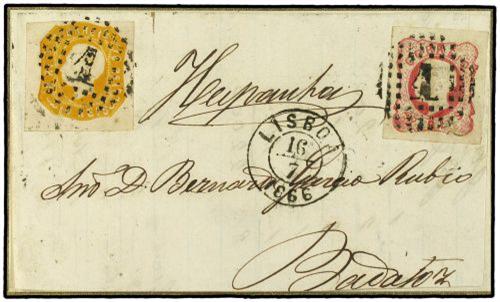 1
1
Hespanha
LISBOA
16
7
1866
Snr. D. Bernardo Garcia Rubio
Badajoz